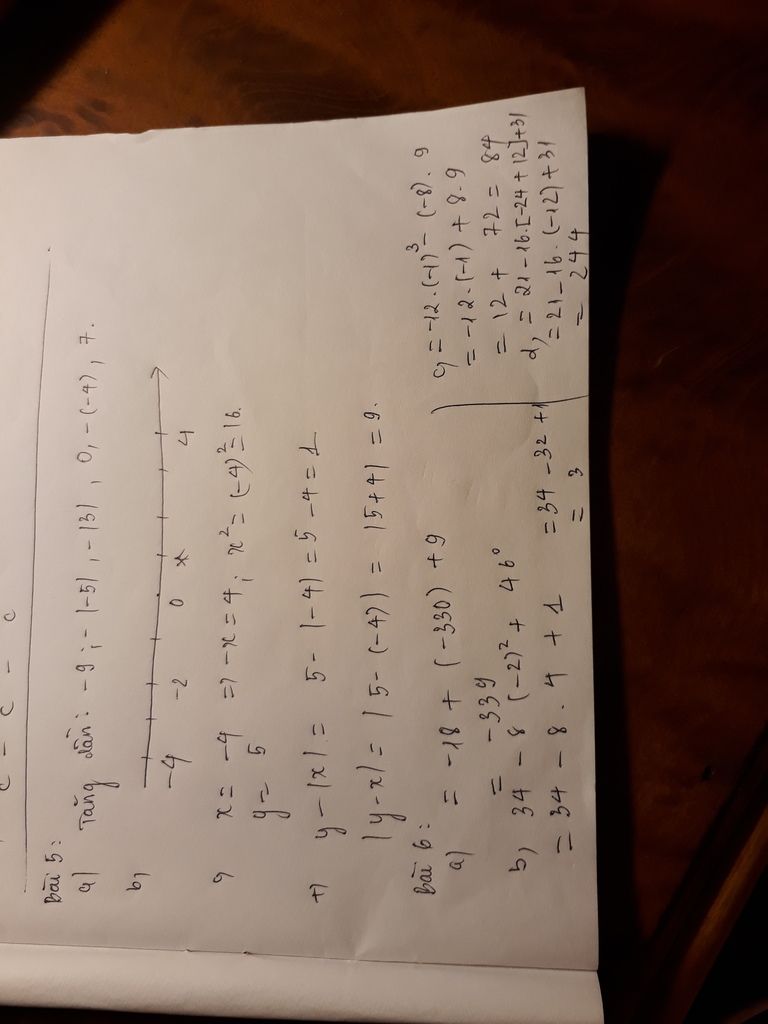 Bài 5:
a) Tăng dần: -9; -|-5|, -|3|, 0, -(-4), 7.
b)
-4 -2 0 4
c) x = -4 => -x = 4; x² = (-4)² = 16.
y = 5
+) y - |x| = 5 - |-4| = 5 - 4 = 1
|y - x| = |5 - (-4)| = |5 + 4| = 9.
Bài 6:
a) = -18 + (-330) + 9
= -339
b, 34 - 8 (-2)² + 46⁰
= 34 - 8 . 4 + 1 = 34 - 32 + 1
= 3
c, = -12 . (-1)³ - (-8) . 9
= -12 . (-1) + 8 . 9
= 12 + 72 = 84
d, = 21 - 16 . [-24 + 12] + 31
= 21 - 16 . (-12) + 31
= 244